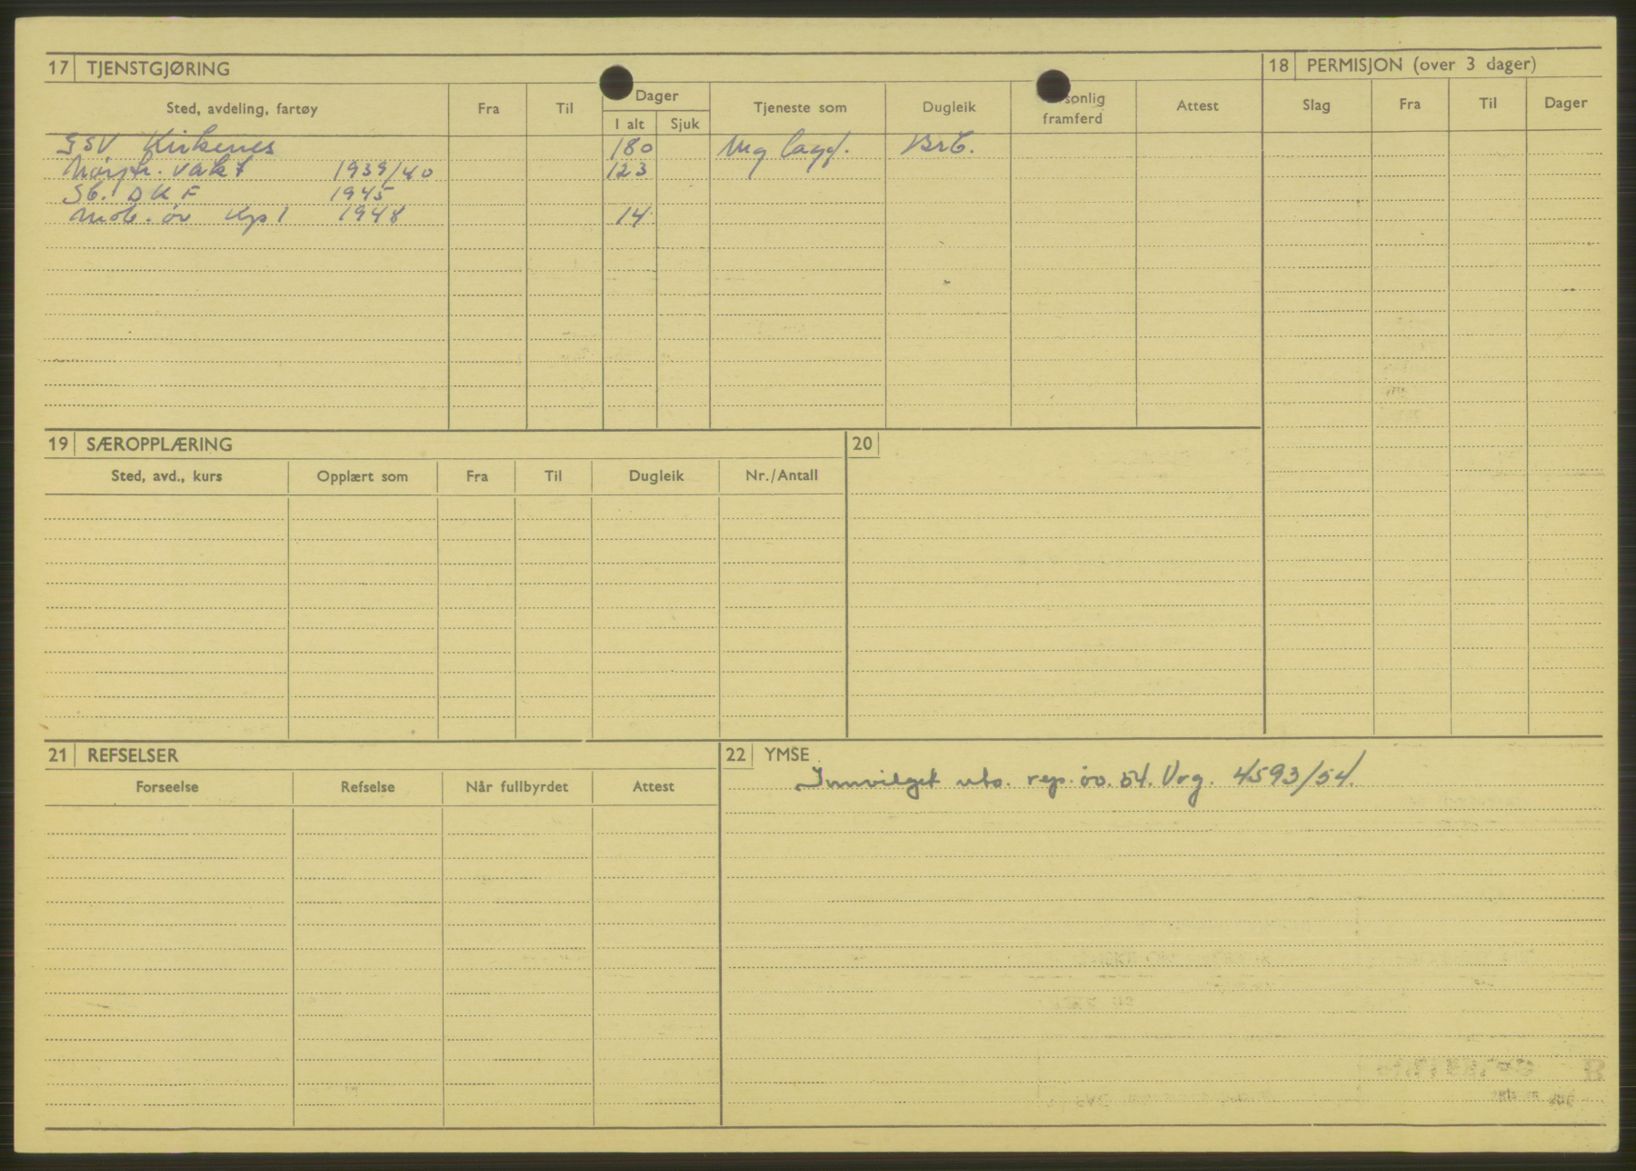 17 TJENSTGJØRING
18 PERMISJON (over 3 dager)
Sted, avdeling, fartøy Fra Til Dager Tjeneste som Dugleik sonlig framferd Attest Slag Fra Til Dager
I alt Sjuk
GSV Kirkenes 180 Mg lagf. Br6.
Nøytr. vakt 1939/40 123
Sb. DKF 1945
Mob. øv Kp 1 1948 14
19 SÆROPPLÆRING
20
Sted, avd., kurs Opplært som Fra Til Dugleik Nr./Antall
21 REFSELSER
22 YMSE
Forseelse Refselse Når fullbyrdet Attest
Innvilget uts. rep. øv. 54. Vrg. 4593/54.